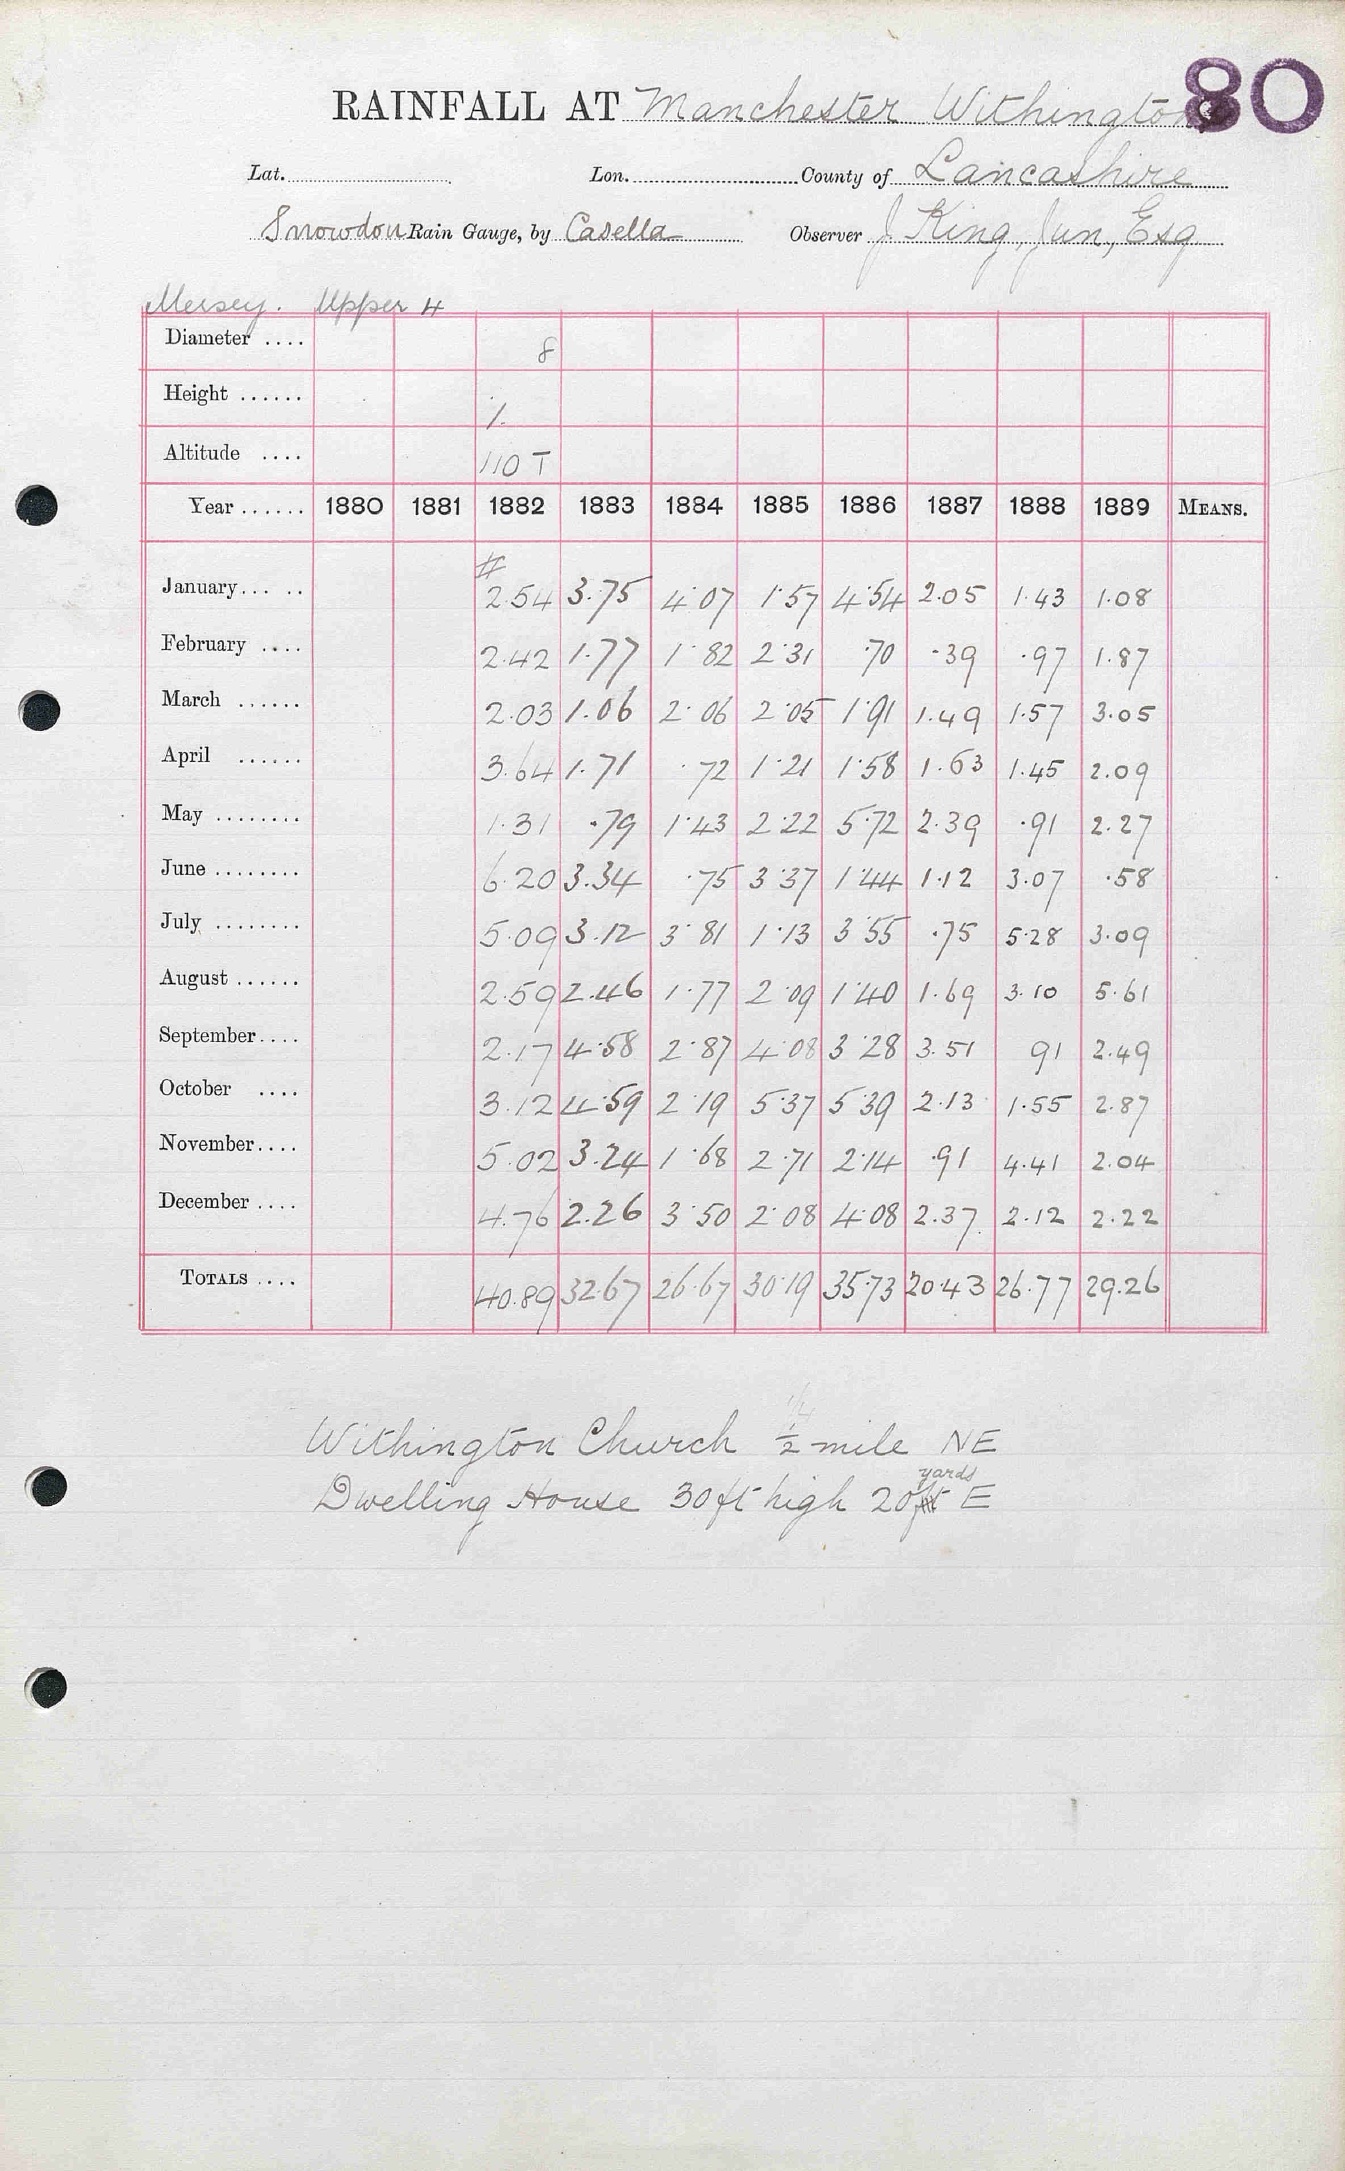 80
RAINFALL AT Manchester Withington
Lat. Lon. County of Lancashire
Snowdon Rain Gauge, by Casella Observer J King, Jun, Esq
Mersey. Upper 4
Diameter .... 8
Height ...... 1.
Altitude .... 110 T
Year ...... 1880 1881 1882 1883 1884 1885 1886 1887 1888 1889 MEANS.
#
January... .. 2.54 3.75 4.07 1.57 4.54 2.05 1.43 1.08
February .... 2.42 1.77 1.82 2.31 .70 .39 .97 1.87
March ...... 2.03 1.06 2.06 2.05 1.91 1.49 1.57 3.05
April ...... 3.64 1.71 .72 1.21 1.58 1.63 1.45 2.09
May ........ 1.31 .79 1.43 2.22 5.72 2.39 .91 2.27
June ........ 6.20 3.34 .75 3.37 1.44 1.12 3.07 .58
July ........ 5.09 3.12 3.81 1.13 3.55 .75 5.28 3.09
August ...... 2.59 2.46 1.77 2.09 1.40 1.69 3.10 5.61
September.... 2.17 4.58 2.87 4.08 3.28 3.51 91 2.49
October .... 3.12 4.59 2.19 5.37 5.39 2.13 1.55 2.87
November.... 5.02 3.24 1.68 2.71 2.14 .91 4.41 2.04
December .... 4.76 2.26 3.50 2.08 4.08 2.37 2.12 2.22
TOTALS .... 40.89 32.67 26.67 30.19 35.73 20.43 26.77 29.26
1/4
Withington Church ½ mile NE
yards
Dwelling House 30ft high 20 ft E